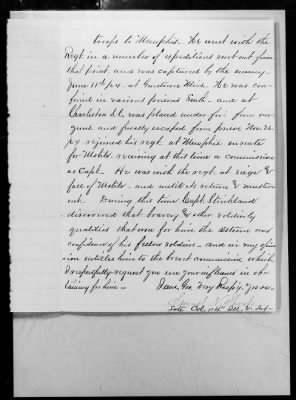 troops to Memphis. He went with the
Regt in a number of expeditions sent out from
that point and was captured by the enemy
June 11th /64 at Guntown Miss. He was con-
fined in various prisons South - and at
Charleston S.C. was placed under fire from our
guns and finally escaped from prison Nov. 26.
/64 rejoined his regt. at Memphis enroute
for Mobile, receiving at this time a commission
as Capt. He was with the regt. at siege &
fall of Mobile - and until its return & muster
out. During this time Capt. Strickland
discovered that bravery & other soldierly
qualities that won for him the esteem and
confidence of his fellow soldiers - and in my opin-
ion entitles him to the brevet commission which
I respectfully request you use your influence in ob-
taining for him -
I am, Gov. Very Respy. Yours
Late Col.